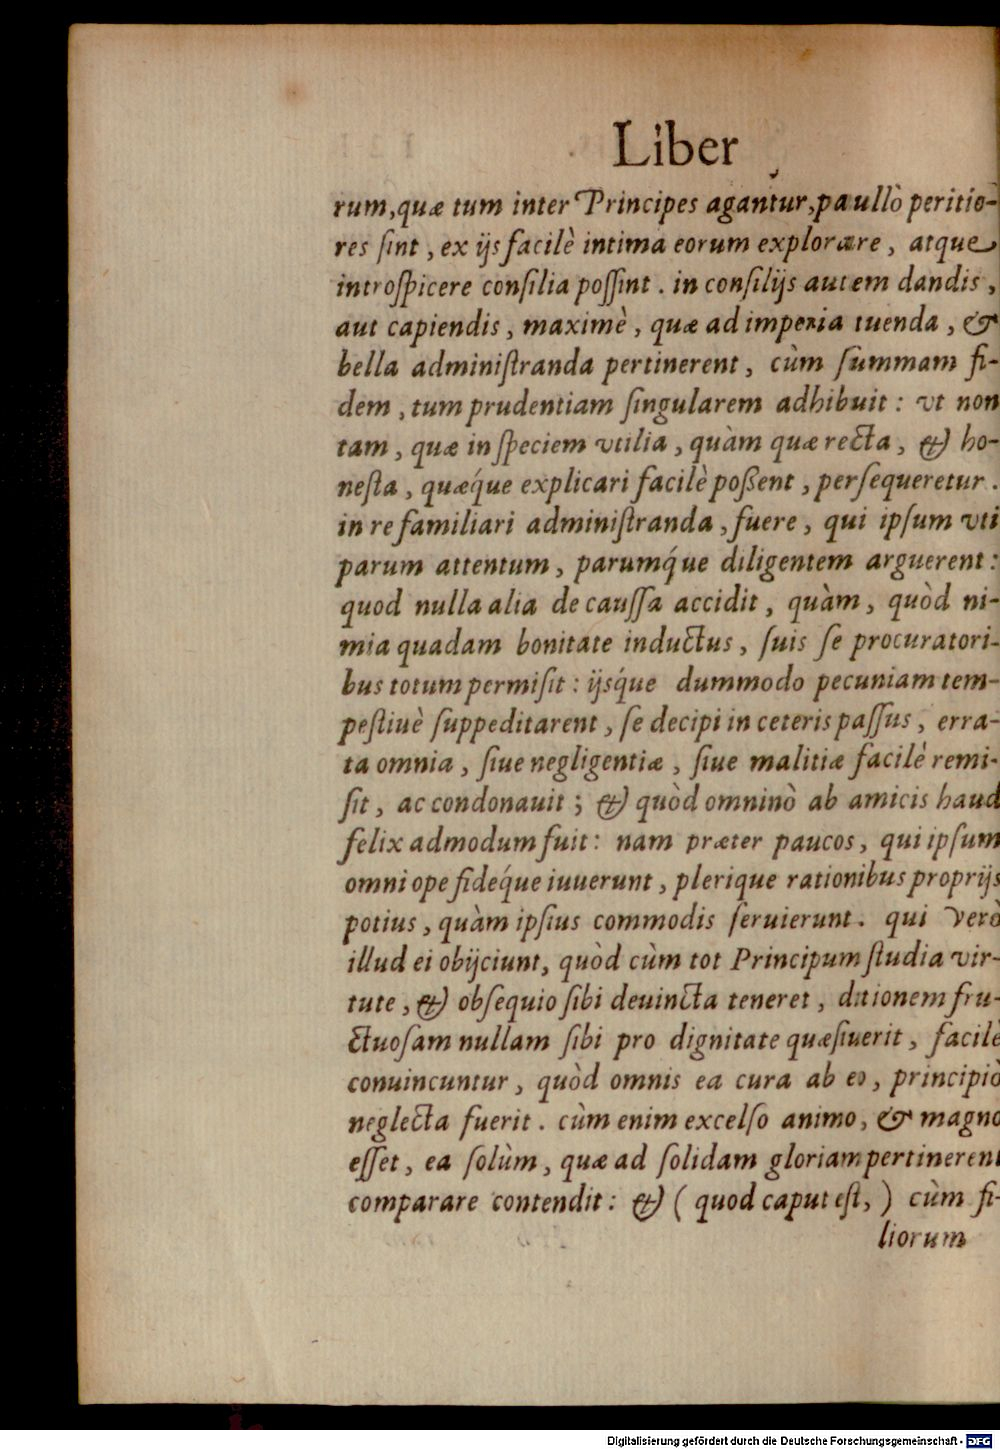 Liber
rum, quæ tum inter Principes agantur, paullò peritio-
res ſint, ex ijs facilè intima eorum explorare, atque
introſpicere conſilia poſſint. in conſilijs autem dandis,
aut capiendis, maximè, quæ ad imperia tuenda, &
bella adminiſtranda pertinerent, cùm ſummam fi-
dem, tum prudentiam ſingularem adhibuit: vt non
tam, quæ in ſpeciem vtilia, quàm quæ recta, & ho-
neſta, quæq́ue explicari facilè poßent, perſequeretur.
in re familiari adminiſtranda, fuere, qui ipſum vti
parum attentum, parumq́ue diligentem arguerent:
quod nulla alia de cauſſa accidit, quàm, quòd ni-
mia quadam bonitate inductus, ſuis ſe procuratori-
bus totum permiſit: ijsq́ue dummodo pecuniam tem-
peſtiuè ſuppeditarent, ſe decipi in ceteris paſſus, erra-
ta omnia, ſiue negligentiæ, ſiue malitiæ facilè remi-
ſit, ac condonauit; & quòd omninò ab amicis haud
felix admodum fuit: nam præter paucos, qui ipſum
omni ope fideq́ue iuuerunt, plerique rationibus proprijs
potius, quàm ipſius commodis ſeruierunt. qui verò
illud ei obijciunt, quòd cùm tot Principum ſtudia vir-
tute, & obſequio ſibi deuincta teneret, ditionem fru-
ctuoſam nullam ſibi pro dignitate quæſiuerit, facilè
conuincuntur, quòd omnis ea cura ab eo, principiò
neglecta fuerit. cùm enim excelſo animo, & magno
eſſet, ea ſolùm, quæ ad ſolidam gloriam pertinerent
comparare contendit: & (quod caput eſt,) cùm fi-
liorum
Digitalisierung gefördert durch die Deutsche Forschungsgemeinschaft - DFG